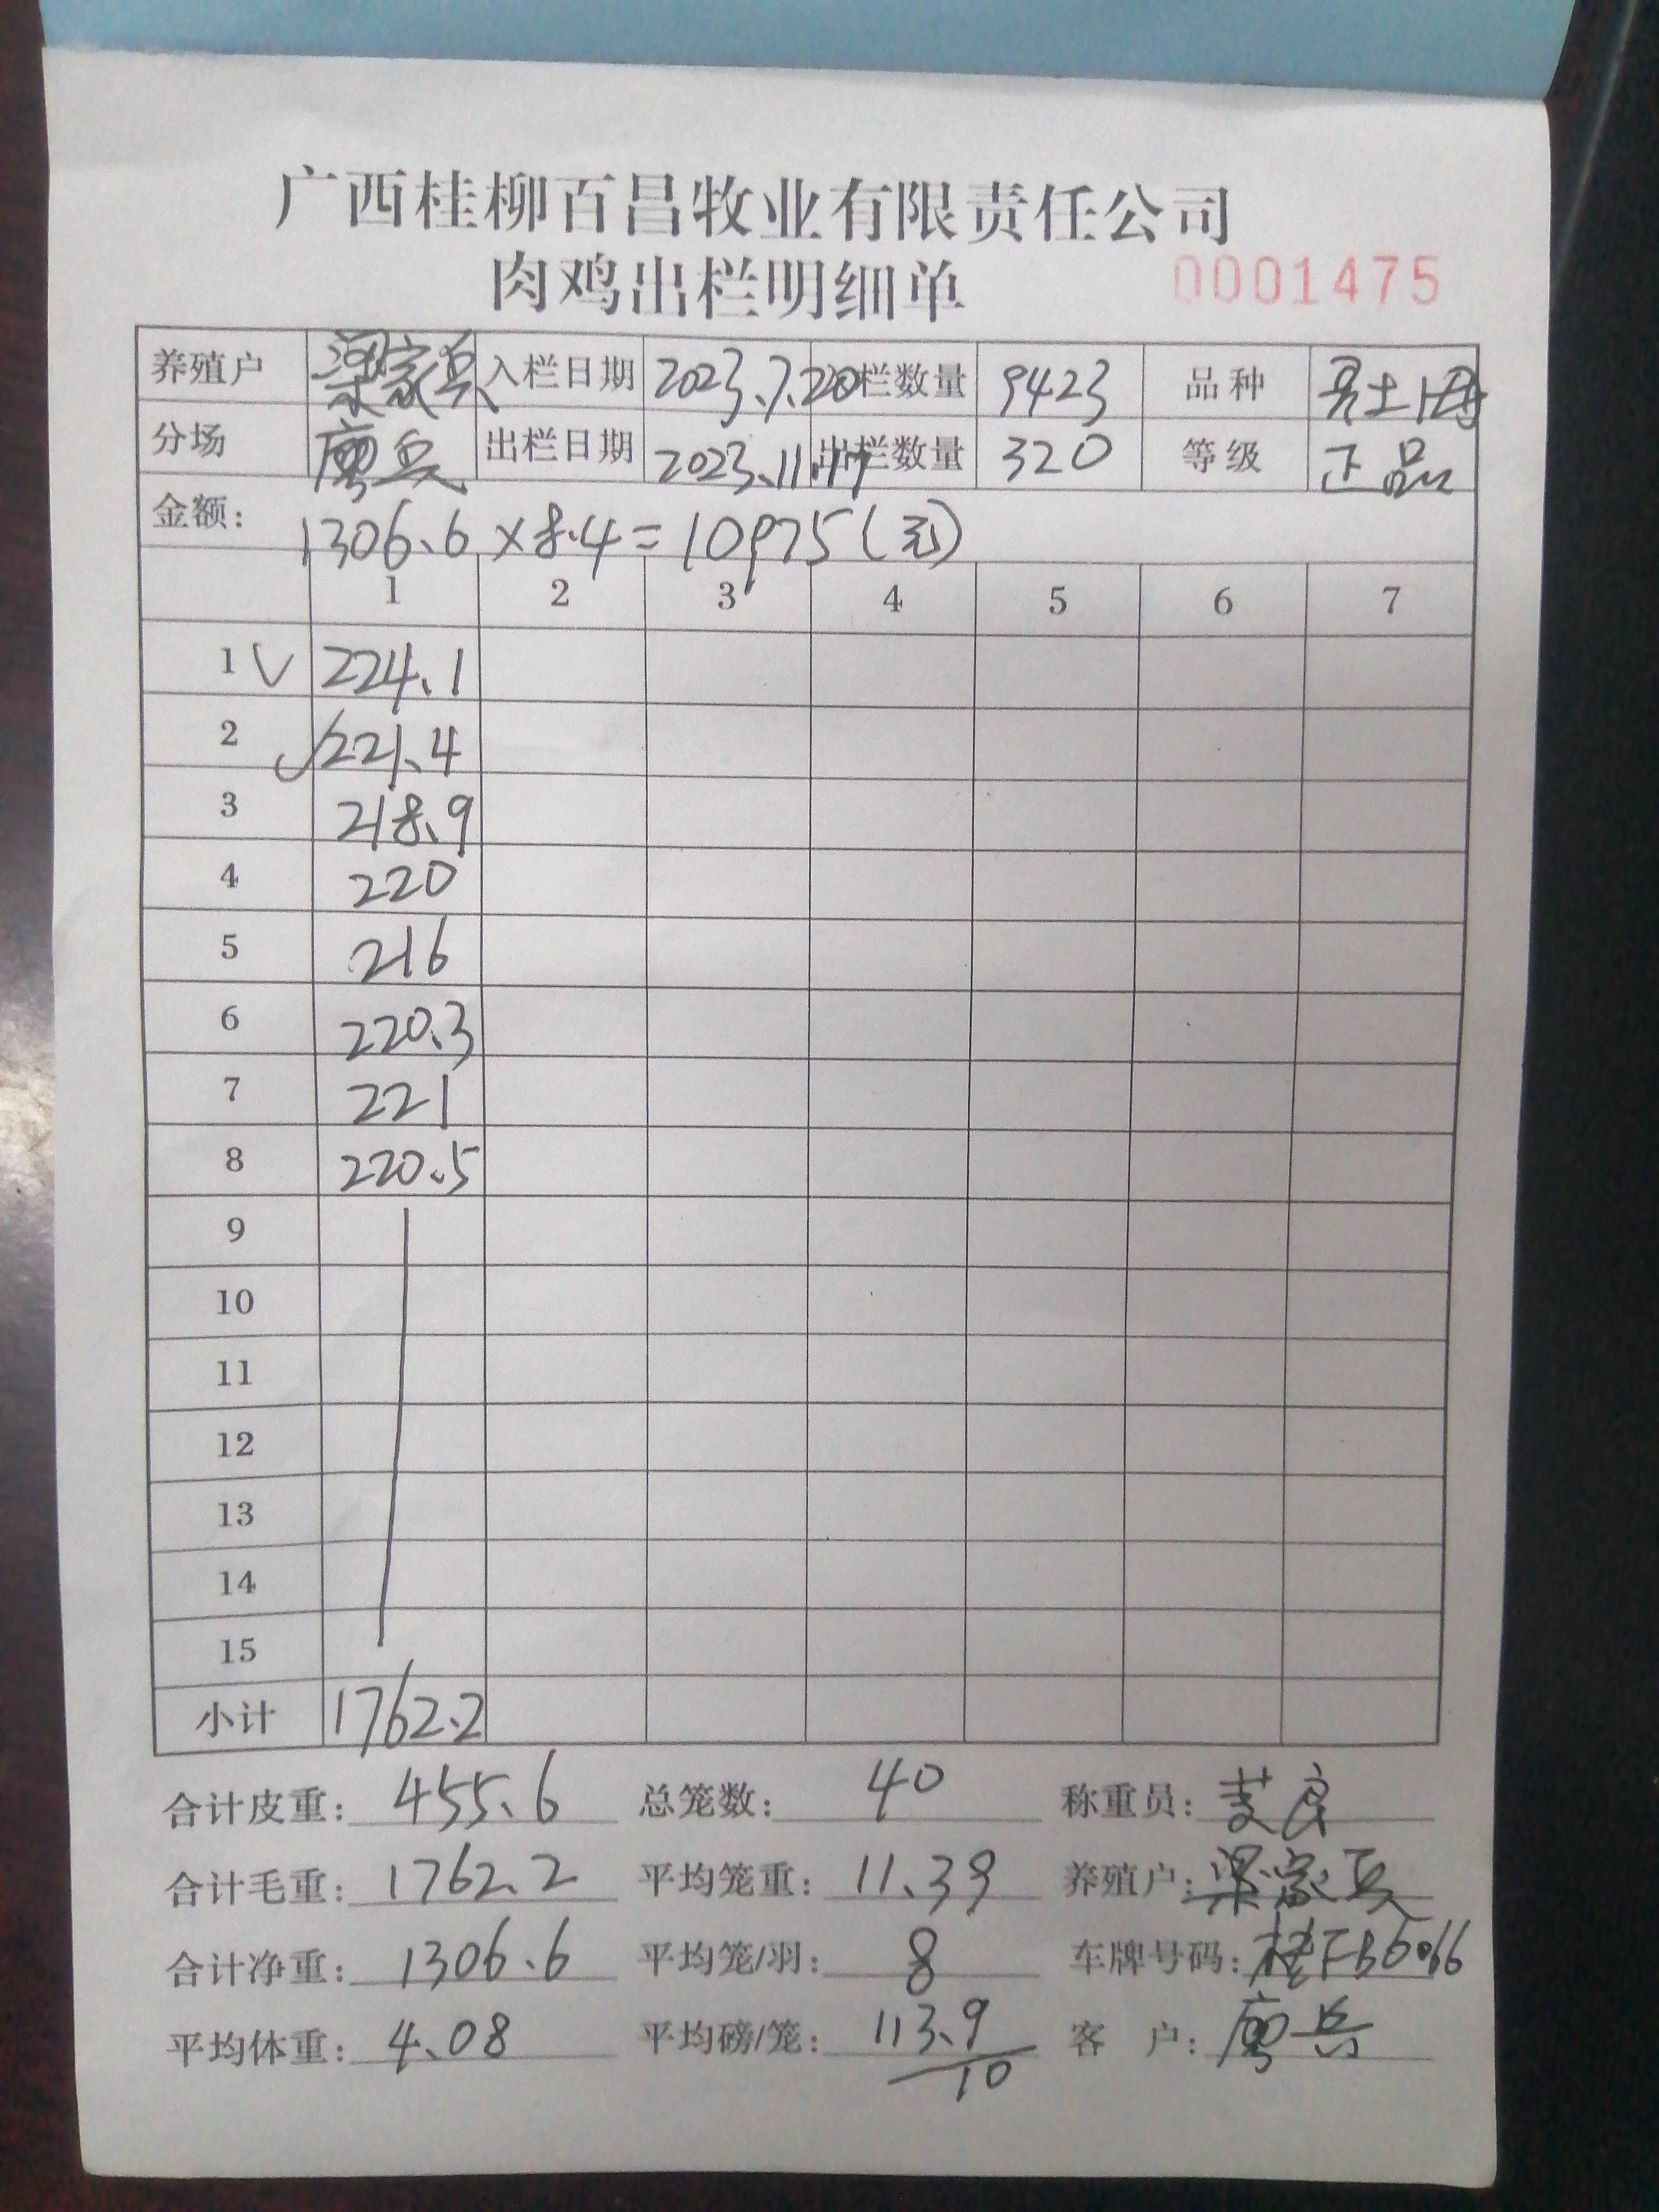 广西桂柳百昌牧业有限责任公司
肉鸡出栏明细单 0001475
养殖户 梁家兵 入栏日期 2023.7.20 栏数量 9423 品种
分场 廖兵 出栏日期 2023.11.17 出栏数量 320 等级 正品
金额: 1306.6×8.4=10975(元)
1 2 3 4 5 6 7
1 224.1
2 221.4
3 218.9
4 220
5 216
6 220.3
7 221
8 220.5
9
10
11
12
13
14
15
小计 1762.2
合计皮重: 455.6 总笼数: 40 称重员:
合计毛重: 1762.2 平均笼重: 11.39 养殖户: 梁家兵
合计净重: 1306.6 平均笼/羽: 8 车牌号码:
平均体重: 4.08 平均磅/笼: 113.9/10 客 户: 廖兵